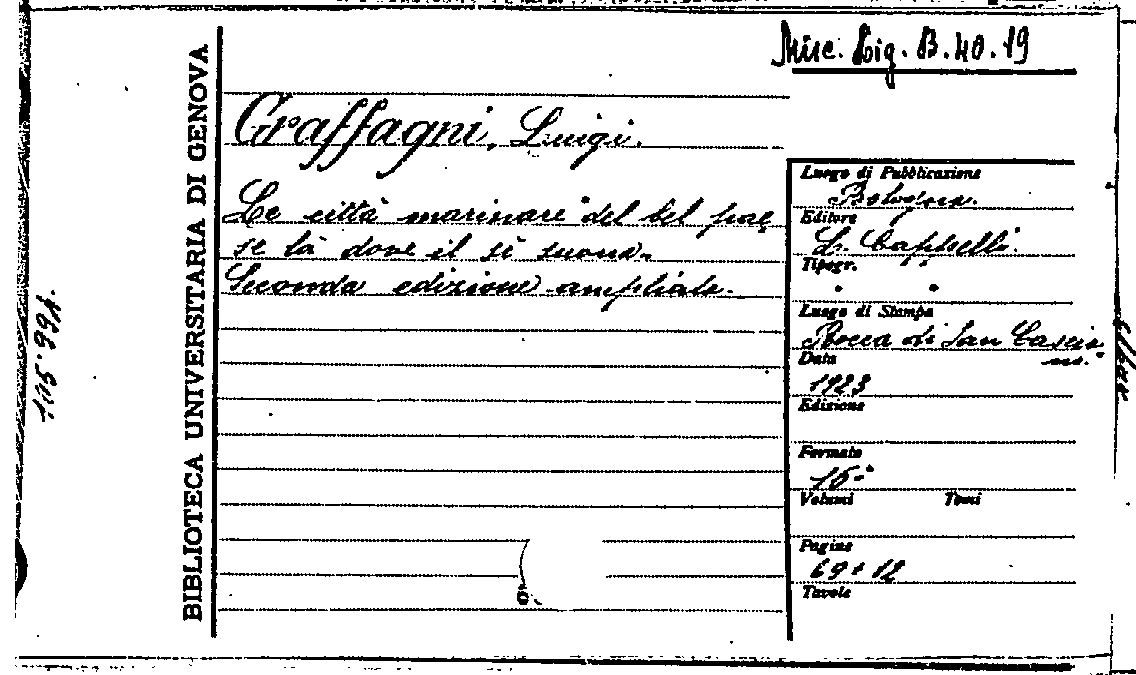 Misc. Lig. B.40.19
BIBLIOTECA UNIVERSITARIA DI GENOVA
Graffagni, Luigi.
Le città marinare del bel pae
se là dove il sì suona.
Seconda edizione ampliata.
Luogo di Pubblicazione
Bologna.
Editore
L. Cappelli.
Tipogr.
" "
Luogo di Stampa
Rocca di San Cascia
no.
Data
1923
Edizione
Formato
16°
Volumi Tomi
Pagine
69+12
Tavole